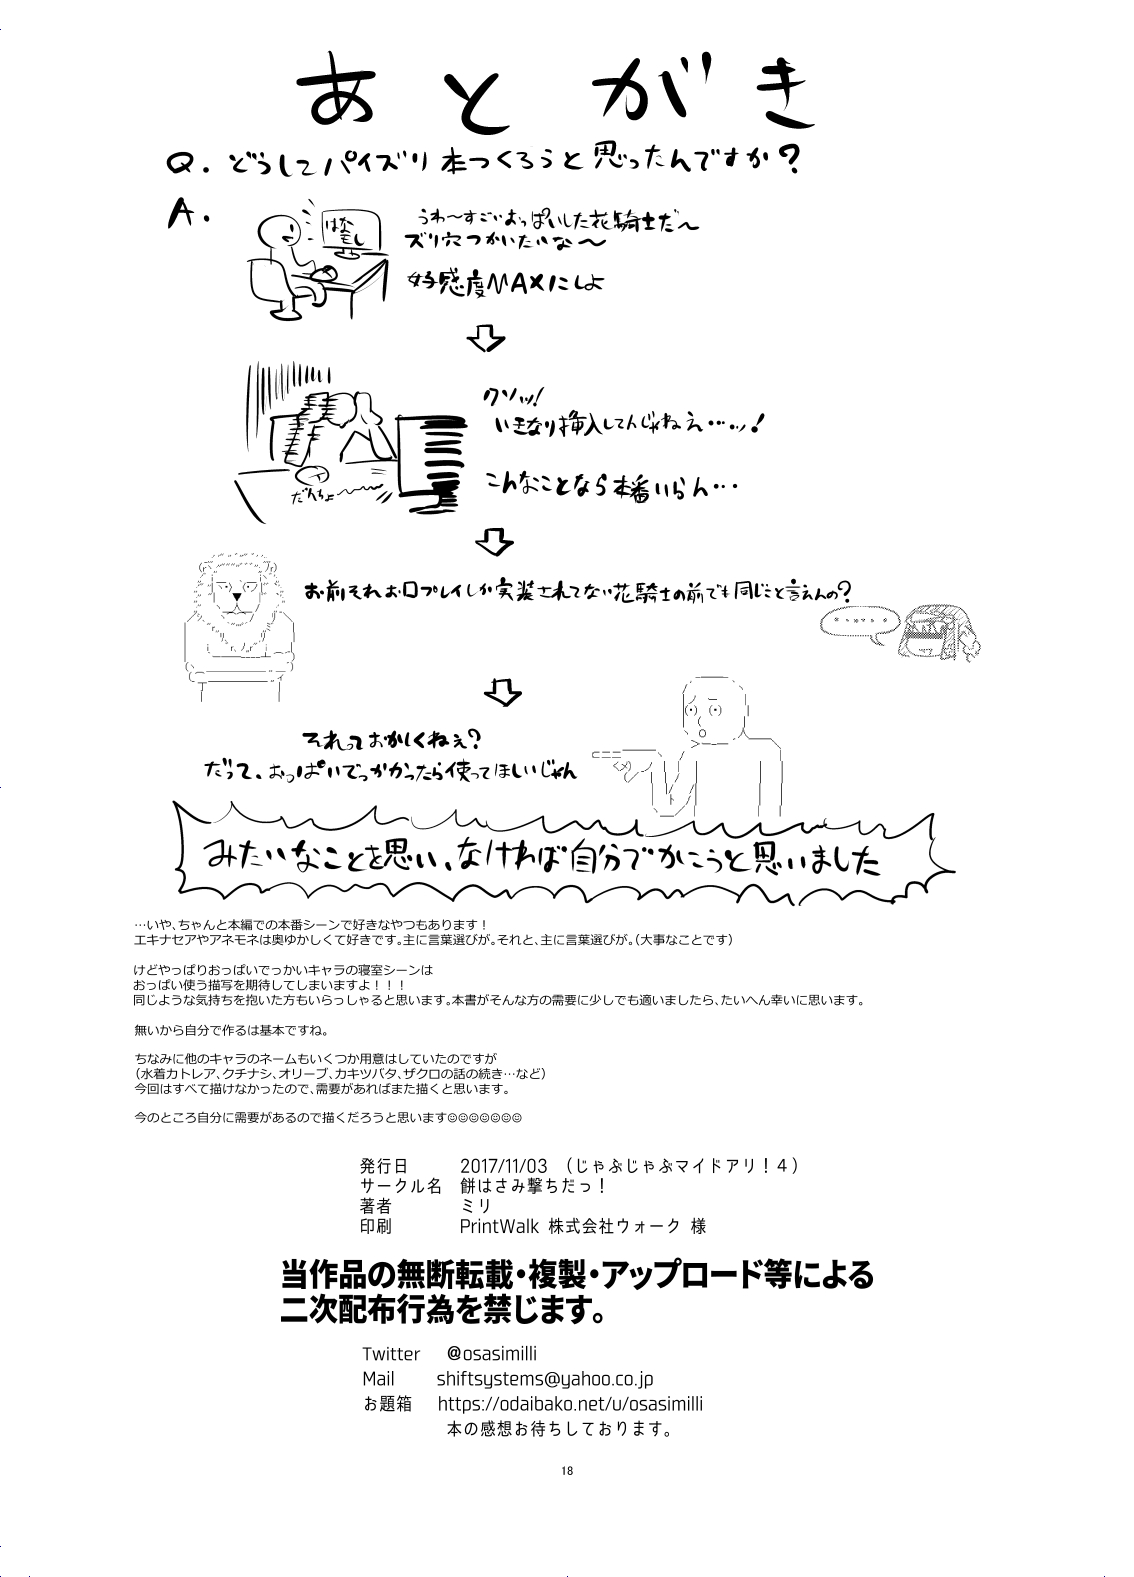 あとがき
Q. どうしてパイズリ本つくろうと思ったんですか?
A.
はな
もし
うわ〜すごいおっぱいした花騎士だ〜
ズリ穴つかいたいな〜
好感度MAXにしよ
クソッ!
いきなり挿入してんじゃねえ…ッ!
こんなことなら本番いらん…
だんちょ〜
お前それお口プレイしか実装されてない花騎士の前でも同じこと言えんの?
それっておかしくねぇ?
だって、おっぱいでっかかったら使ってほしいじゃん
みたいなことを思い、なければ自分でかこうと思いました
…いや、ちゃんと本編での本番シーンで好きなやつもあります!
エキナセアやアネモネは奥ゆかしくて好きです。主に言葉選びが。それと、主に言葉選びが。(大事なことです)
けどやっぱりおっぱいでっかいキャラの寝室シーンは
おっぱい使う描写を期待してしまいますよ!!!
同じような気持ちを抱いた方もいらっしゃると思います。本書がそんな方の需要に少しでも適いましたら、たいへん幸いに思います。
無いから自分で作るは基本ですね。
ちなみに他のキャラのネームもいくつか用意はしていたのですが
(水着カトレア、クチナシ、オリーブ、カキツバタ、ザクロの話の続き…など)
今回はすべて描けなかったので、需要があればまた描くと思います。
今のところ自分に需要があるので描くだろうと思います☺☺☺☺☺☺☺
発行日 2017/11/03 (じゃぶじゃぶマイドアリ!4)
サークル名 餅はさみ撃ちだっ!
著者 ミリ
印刷 PrintWalk 株式会社ウォーク 様
当作品の無断転載・複製・アップロード等による
二次配布行為を禁じます。
Twitter @osasimilli
Mail shiftsystems@yahoo.co.jp
お題箱 https://odaibako.net/u/osasimilli
本の感想お待ちしております。
18